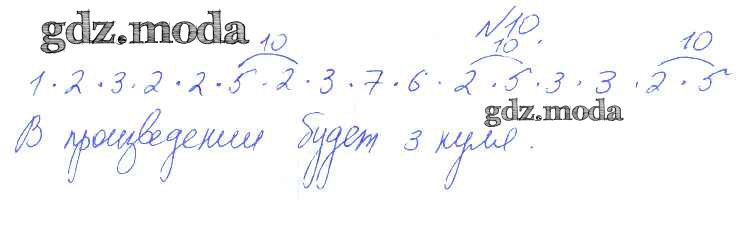 gdz.moda
№10.
10 10 10
1 · 2 · 3 · 2 · 2 · 5 · 2 · 3 · 7 · 6 · 2 · 5 · 3 · 3 · 2 · 5
gdz.moda
В произведении будет 3 нуля.